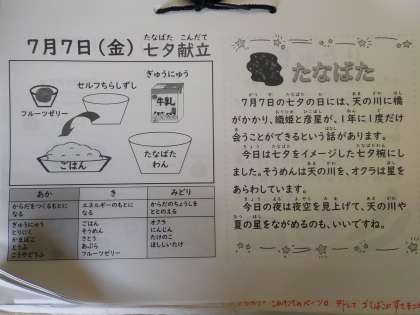 たなばた こんだて
7月7日(金) 七夕献立
ぎゅうにゅう
セルフちらしずし
牛乳
フルーツゼリー
ごはん
たなばた
わん
あか き みどり
からだをつくるもとに
なる
エネルギーのもとに
なる
からだのちょうしを
ととのえる
ぎゅうにゅう
とりにく
かまぼこ
とうふ
こうやどうふ
ごはん
そうめん
さとう
あぶら
フルーツゼリー
オクラ
にんじん
たけのこ
ほししいたけ
たなばた
7月7日の七夕の日には、天の川に橋
がかかり、織姫と彦星が、1年に1度だけ
会うことができるという話があります。
今日は七夕をイメージした七夕椀にし
ました。そうめんは天の川を、オクラは星を
あらわしています。
今日の夜は夜空を見上げて、天の川や
夏の星をながめるのも、いいですね。